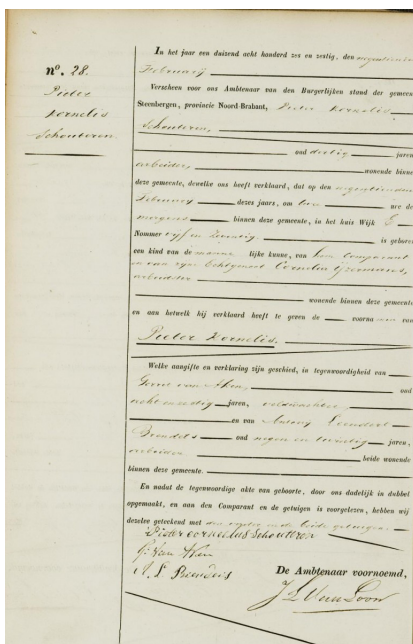 nº. 28.
Pieter
Kornelis
Schouteren
In het jaar een duizend acht honderd zes en zestig, den negentienden
Februarij
Verscheen voor ons Ambtenaar van den Burgerlijken stand der gemeen
Steenbergen, provincie Noord-Brabant, Pieter Kornelis
Schouteren,
oud dertig jaren
arbeider, wonende binne
deze gemeente, dewelke ons heeft verklaard, dat op den negentienden
Februarij dezes jaars, om ure de
morgens binnen deze gemeente, in het huis Wijk E
Nommer vijf en is geboren
een kind van de manne lijke kunne, van hem comparant
en van zijne Echtgenoot Cornelia
arbeidster
wonende binnen deze gemeente
en aan hetwelk hij verklaard heeft te geven de voorna men van
Pieter Kornelis.
Welke aangifte en verklaring zijn geschied, in tegenwoordigheid van
Gerrit van Aken, oud
acht en jaren, veldwachter
en van Antonij Leendert
Brendels oud negen en twintig jaren,
arbeider beide wonende
binnen deze gemeente.
En nadat de tegenwoordige akte van geboorte, door ons dadelijk in dubbel
opgemaakt, en aan den Comparant en de getuigen is voorgelezen, hebben wij
dezelve geteekend met den vader en de beide getuigen.
Pieter cornelus Schouteren
G. van Aken
A. L. Brendels
De Ambtenaar voornoemd,
J L van Loon